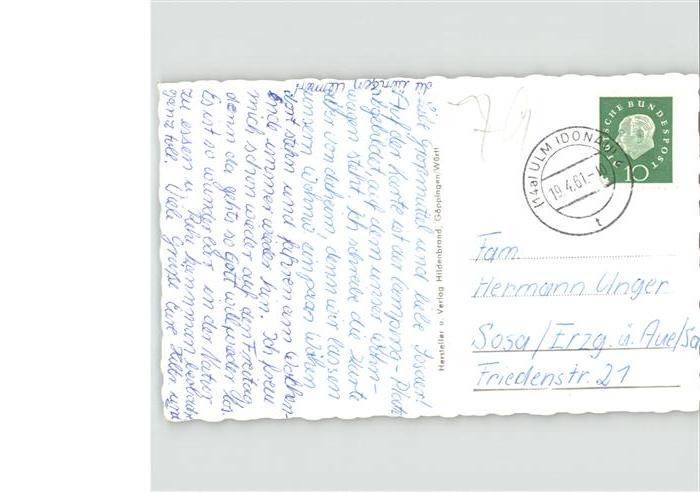 Liebe Großmutti und liebe
Auf der Karte ist der Camping-Platz
abgebildet auf dem unser Wohn-
wagen steht. Ich schreibe die Karte
aber von daheim, denn wir lassen
unsern Wohni ein paar Wochen
dort stehn und fahren am Wochen-
Ende immer wieder hin. Ich freu
mich schon wieder auf den Freitag
denn da gehts so Gott will wieder los.
Es ist so wunderbar in der Natur
zu essen u.
ganz toll. Viele Grüße Eure
Hersteller u. Verlag Hildenbrand, Göppingen/Württ
79
DEUTSCHE BUNDESPOST
10
(14a) ULM (DONAU)
19.4.61
t
Fam.
Hermann Unger
Sosa/Erzg. ü. Aue/Sa
Friedenstr. 21